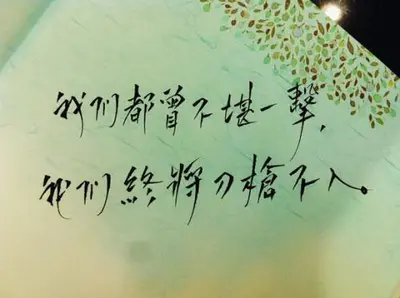 我们都曾不堪一擊,
我们終將刀槍不入。